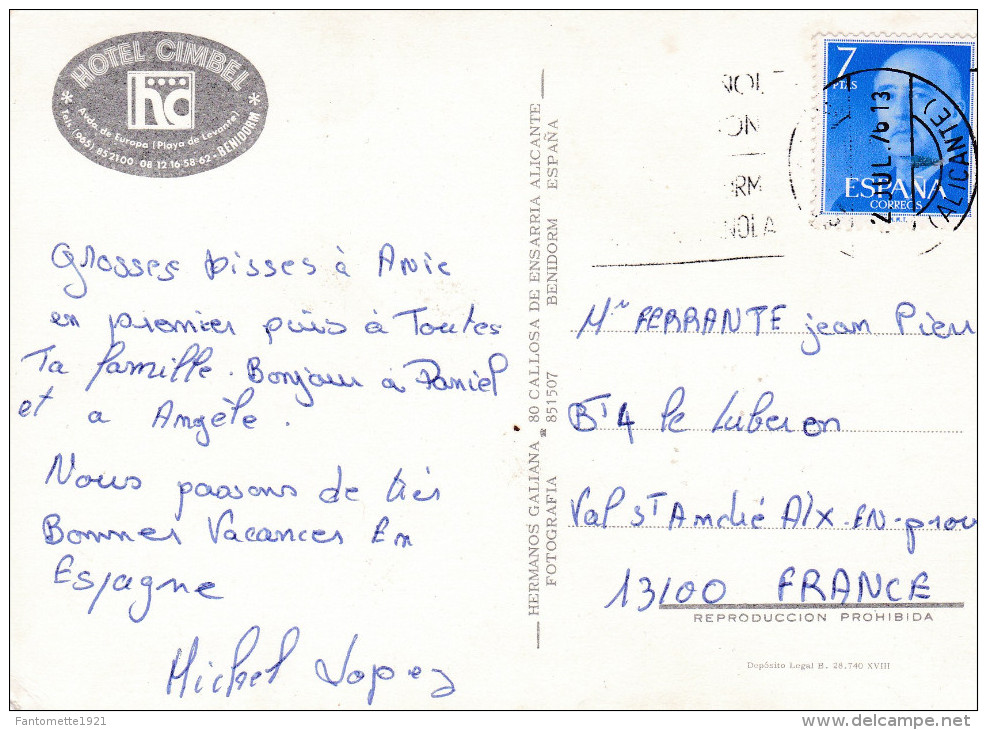 HOTEL CIMBEL
hc
Avda. de Europa (Playa de Levante)
Tels. (965) 852100 08 12 16-58-62 - BENIDORM
Grosses bisses à Anie
en premier puis à Toutes
Ta famille. Bonjour a Daniel
et a Angèle.
Nous passons de très
Bonnes Vacances En
Espagne
Michel Lopez
HERMANOS GALIANA - 80 CALLOSA DE ENSARRIA ALICANTE
FOTOGRAFIA ☎ 851507 BENIDORM ESPAÑA
7
PTAS
ESPAÑA
CORREOS
JUL. 76 13
(ALICANTE)
NOLA
Mr FERRANTE jean Pierr
BT 4 le Luberon
Val ST André AIX-EN-prov
13100 FRANCE
REPRODUCCION PROHIBIDA
Depósito Legal B. 28.740 XVIII
Fantomette1921
delcampe.net